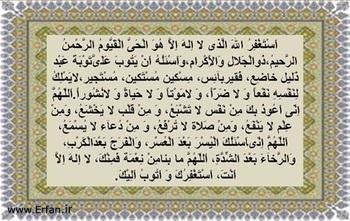 اَسْتَغْفِرُ اللهَ الَّذى لا اِلهَ اِلاَّ هُوَ الْحَىُّ الْقَيُّومُ الرَّحْمنُ
الرَّحيمُ،ذوالْجَلالِ وَالْاِكْرامِ،وَاَسْئَلُهُ اَنْ يَتُوبَ عَلَىَّ تَوْبَةَ عَبْد
ذَليل خاضِع، فَقيربآئِس، مِسْكين مُسْتَكين، مُسْتَجير،لايَمْلِكُ
لِنَفْسِهِ نَفْعاً وَ لا ضَرّاً، وَ لامَوْتاً وَ لا حَياةً وَ لانُشُوراً.اَللّهُمَّ
اِنّى اَعُوذُ بِكَ مِنْ نَفْس لا تَشْبَعُ، وَ مِنْ قَلْب لا يَخْشَعُ، وَ مِنْ
عِلْم لا يَنْفَعُ، وَ مِنْ صَلاة لا تُرْفَعُ، وَ مِنْ دُعاء لا يُسْمَعُ،
اَللّهُمَّ اِنّى اَسْئَلُكَ الْيُسْرَ بَعْدَ الْعُسْرِ، وَالْفَرَجَ بَعْدَالْكَرْبِ،
وَالرَّخاءَ بَعْدَ الشِّدَّةِ، اَللّهُمَّ ما بِنامِنْ نِعْمَة فَمِنْكَ، لا اِلهَ اِلاَّ
اَنْتَ، اَسْتَغْفِرُكَ وَ اَتُوبُ اِلَيْكَ.
www.Erfan.ir